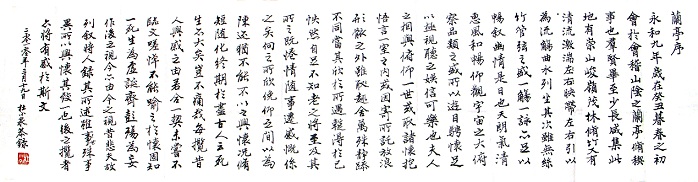 蘭亭序
永和九年歲在癸丑暮春之初
會於會稽山陰之蘭亭修禊
事也羣賢畢至少長咸集此
地有崇山峻嶺茂林修竹又有
清流激湍映帶左右引以
為流觴曲水列坐其次雖無絲
竹管弦之盛一觴一詠亦足以
暢敘幽情是日也天朗氣清
惠風和暢仰觀宇宙之大俯
察品類之盛所以遊目騁懷足
以極視聽之娛信可樂也夫人
之相與俯仰一世或取諸懷抱
悟言一室之內或因寄所託放浪
形骸之外雖趣舍萬殊靜躁
不同當其欣於所遇暫得於己
怏然自足不知老之將至及其
所之既倦情隨事遷感慨係
之矣向之所欣俛仰之間以為
陳迹猶不能不以之興懷況脩
短隨化終期於盡古人云死
生亦大矣豈不痛哉每攬昔
人興感之由若合一契未嘗不
臨文嗟悼不能喻之於懷固知
一死生為虛誕齊彭殤為妄
作後之視今亦由今之視昔悲夫故
列敘時人錄其所述雖世殊事
異所以興懷其致一也後之攬者
亦將有感於斯文